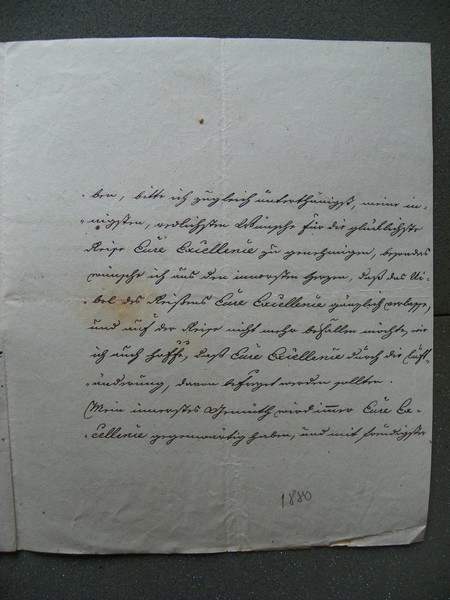 -ben, bitte ich zugleich unterthänigst, meine in-
-nigsten, redlichsten Wünsche für die glücklichste
Reise Eure Excellenie zu genehmigen, besonders
wünsche ich aus den innersten Herzen, daß das Ui-
-bel des Reißens Eure Excellenie gänzlich verlasse,
und auf der Reise nicht mehr befallen möchte, wie
ich auch hoffe, daß Eure Excellenie durch die Luft-
-änderung, davon befreyet werden sollten.
Mein innerstes Gemüth wird immer Eure Ex-
-cellenie gegenwärtig haben, und mit freudigster
1880